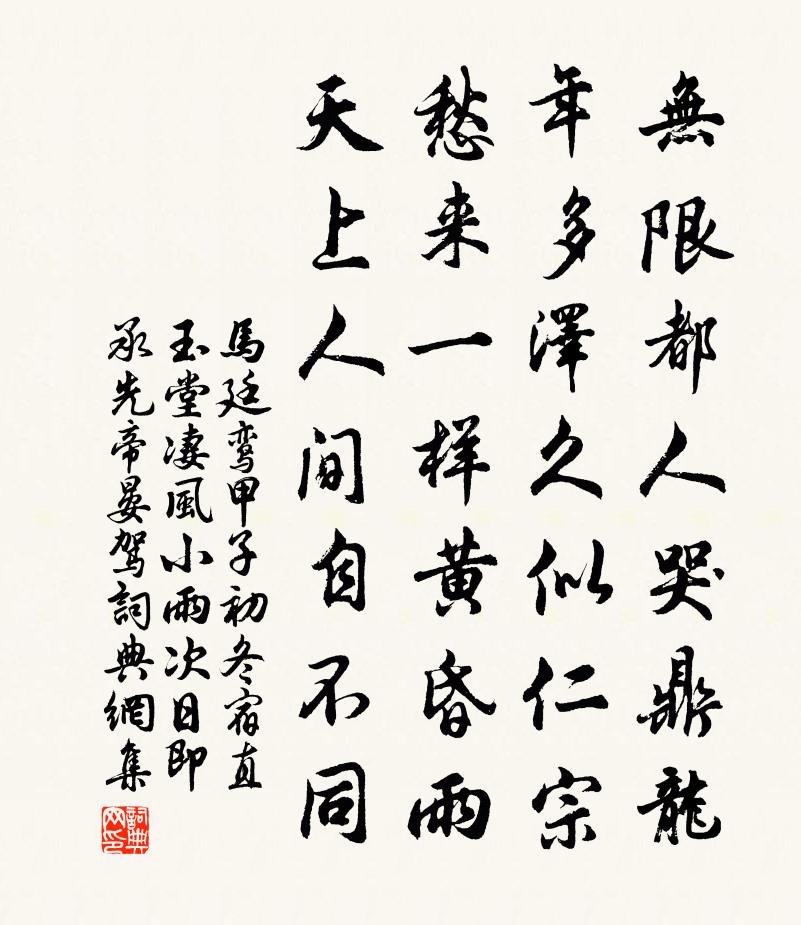 無限都人哭鼎龍
年多澤久似仁宗
愁来一样黄昏雨
天上人间自不同
馬廷鸾甲子初冬宿直
玉堂凄風小雨次日即
承先帝晏驾詞典網集
詞典网印